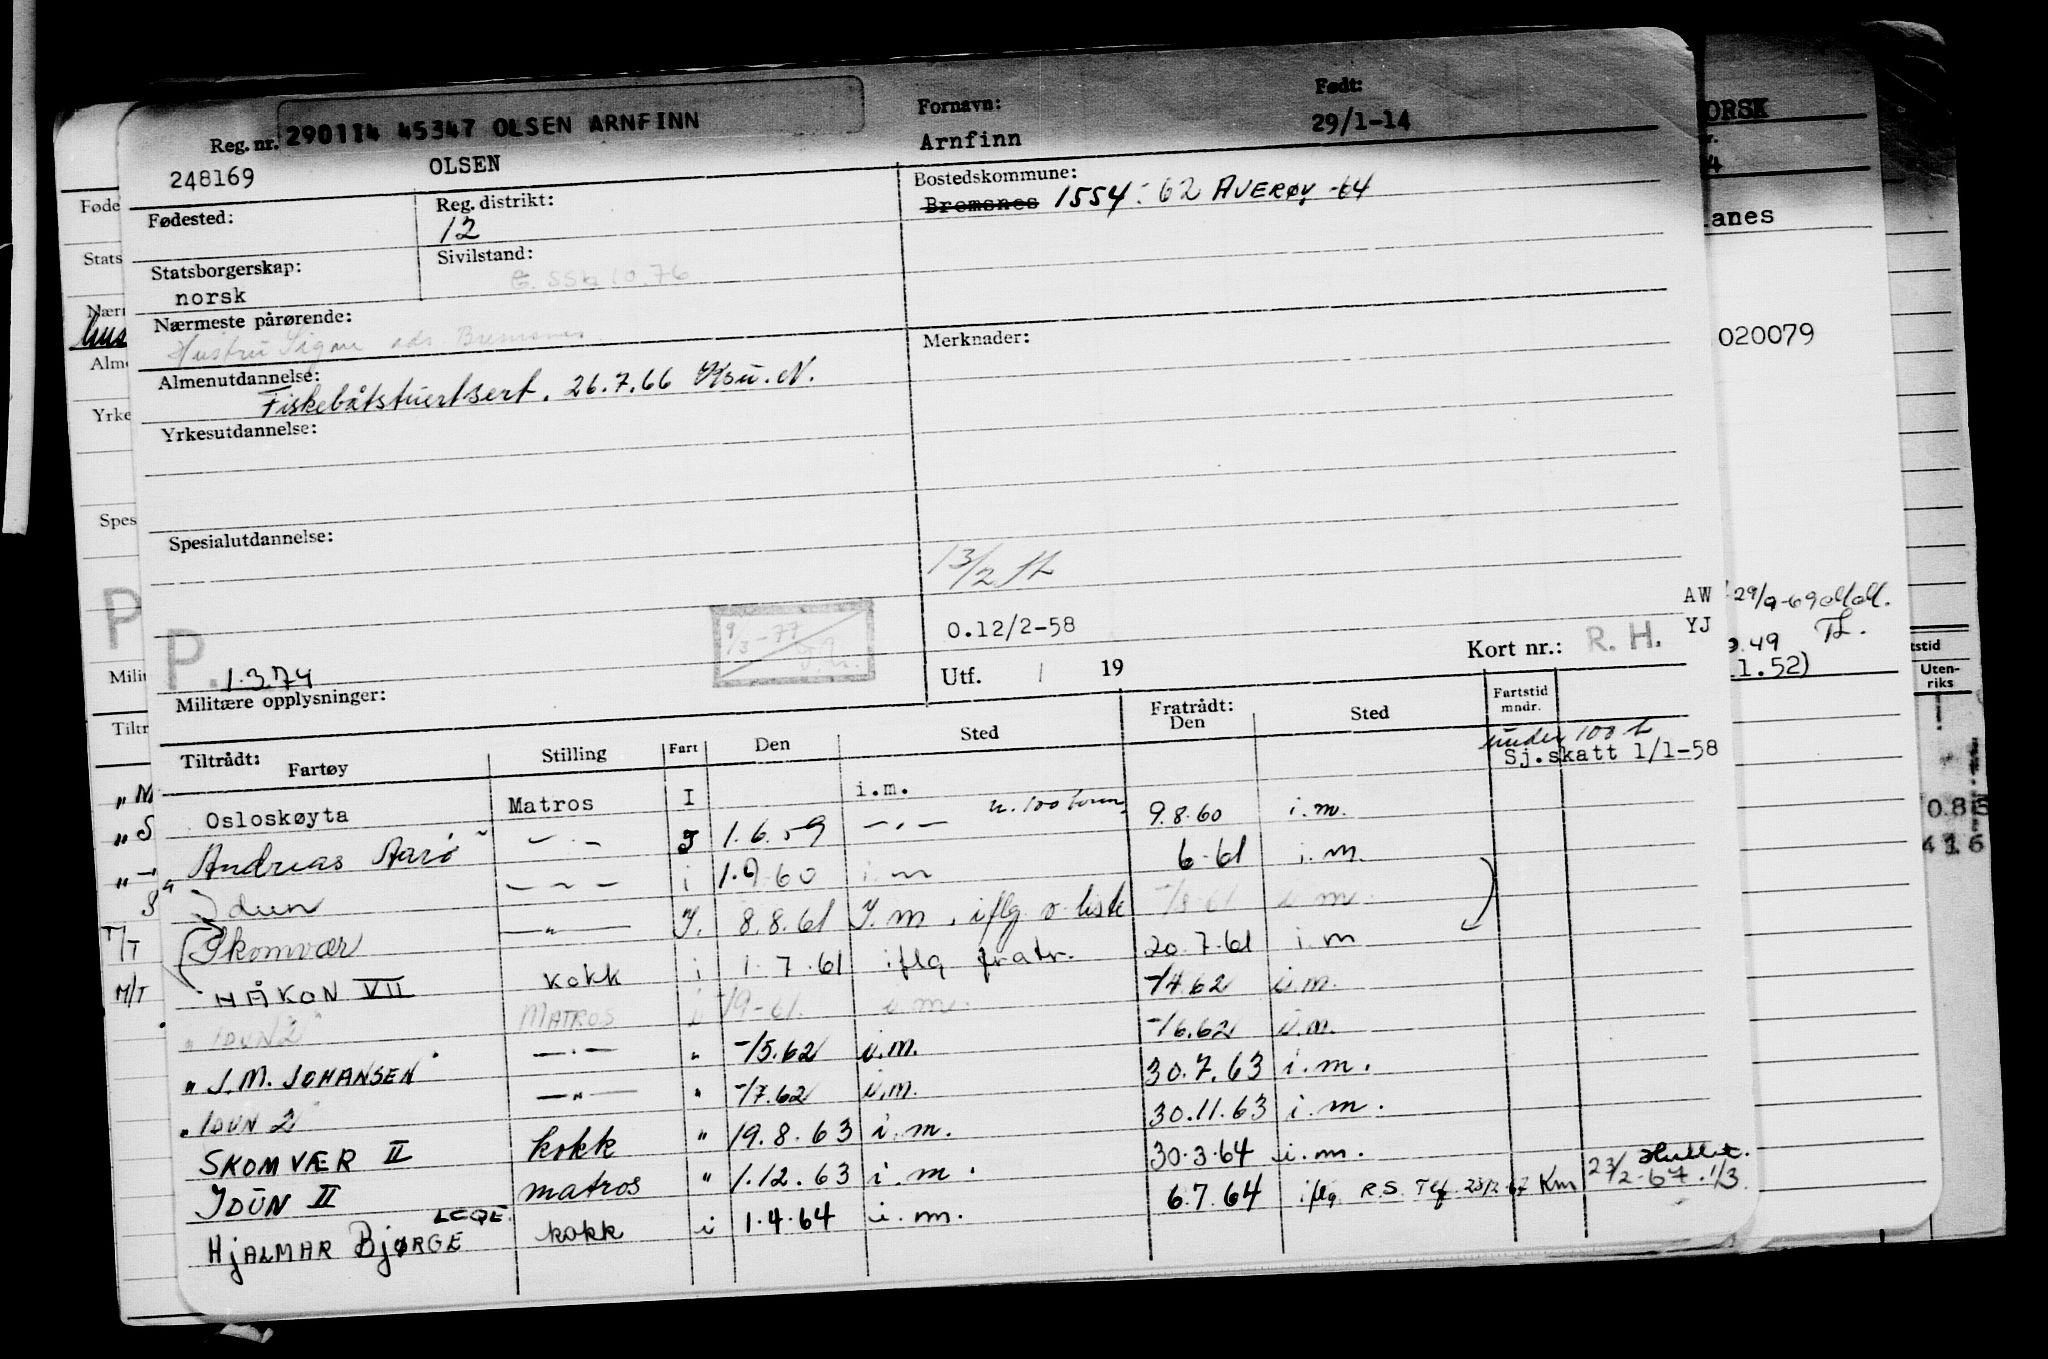 290114 45347 OLSEN ARNFINN
Reg. nr.
248169 OLSEN
Fornavn:
Arnfinn
Født:
29/1-14
Fødested:
Reg. distrikt:
12
Bostedskommune:
Bremsnes 1554-62 AVERØY -64
Statsborgerskap:
norsk
Sivilstand:
Nærmeste pårørende:
Hustru Signe ads Bremsnes
Merknader:
Almenutdannelse:
Fiskebåtstuertsert. 26.7.66 Ksu. N.
Yrkesutdannelse:
Spesialutdannelse:
13/2
0.12/2-58
P.
1.3.74
9/3-77
Utf. 19
Kort nr.: R. H.
Militære opplysninger:
Tiltrådt:
Fartøy Stilling Fart Den Sted
Fratrådt:
Den Sted
Fartstid
mndr.
under 100 t
Sj.skatt 1/1-58
Osloskøyta Matros I i.m.
Andreas Aarö — " — I 1.6.59 — " — u. 100 tonn 9.8.60 i.m.
Idun — " — i 1.9.60 i.m 6-61 i.m.
Skomvær — " — I. 8.8.61 I.m. iflg. o liste i.m.
HÅKON VII kokk i 1.7.61 iflg fratr. 20.7.61 i.m
" IDUN 2" MATROS i -/9-61. i.m. -/4.62 i.m.
" J.M. JOHANSEN" — " — " -/5.62 i.m. -/6.62 i.m.
" IDUN 2" — " — " -/7.62 i.m. 30.7.63 i.m.
SKOMVÆR II kokk " 19.8.63 i.m. 30.11.63 i.m.
IDUN II matros " 1.12.63 i.m. 30.3.64 i.m.
HJALMAR BJØRGE kokk i 1.4.64 i.m. 6.7.64 iflg. R.S. Tlf. 23/2-67 Km
23/2-67. 1/3
Føde
Stats
Nærr
hus
Alme
Yrke
Spes
P
Milit
Tiltr
" M
" S
T/T
M/T
ORSK
anes
020079
AW 29/9-69
YJ
.49 TL.
1.52)
tstid
Uten-
riks
0.85